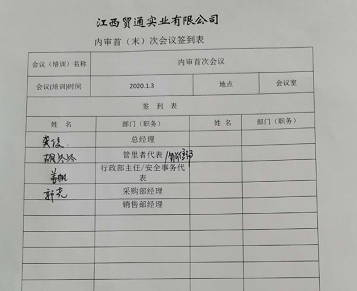 江西贸通实业有限公司
内审首（末）次会议签到表
会议（培训）名称 内审首次会议
会议(培训)时间 2020.1.3 地点 会议室
签 到 表
姓 名 部门（职务） 姓 名 部门（职务）
总经理
管理者代表
行政部主任/安全事务代
表
采购部经理
销售部经理